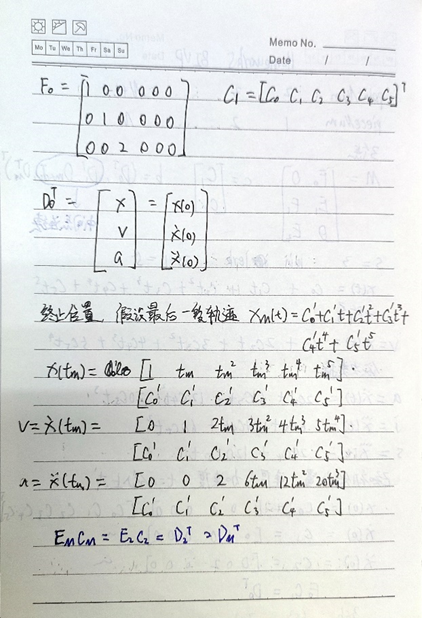 Memo No.
Mo Tu We Th Fr Sa Su
Date / /
F₀ = [1 0 0 0 0 0
0 1 0 0 0 0
0 0 2 0 0 0]
C₁ = [C₀ C₁ C₂ C₃ C₄ C₅]ᵀ
D₀ᵀ = [x
v
a] = [x(0)
ẋ(0)
ẍ(0)]
终止位置 假设最后一段轨迹 Xm(t) = C₀'+C₁'t+C₂'t²+C₃'t³+
C₄'t⁴ + C₅'t⁵
x(tm) = [1 tm tm² tm³ tm⁴ tm⁵]·
[C₀' C₁' C₂' C₃' C₄' C₅']
v = ẋ(tm) = [0 1 2tm 3tm² 4tm³ 5tm⁴]
[C₀' C₁' C₂' C₃' C₄' C₅']
a = ẍ(tm) = [0 0 2 6tm 12tm² 20tm³]
[C₀' C₁' C₂' C₃' C₄' C₅']
EMCM = E₂C₂ = D₂ᵀ = DMᵀ